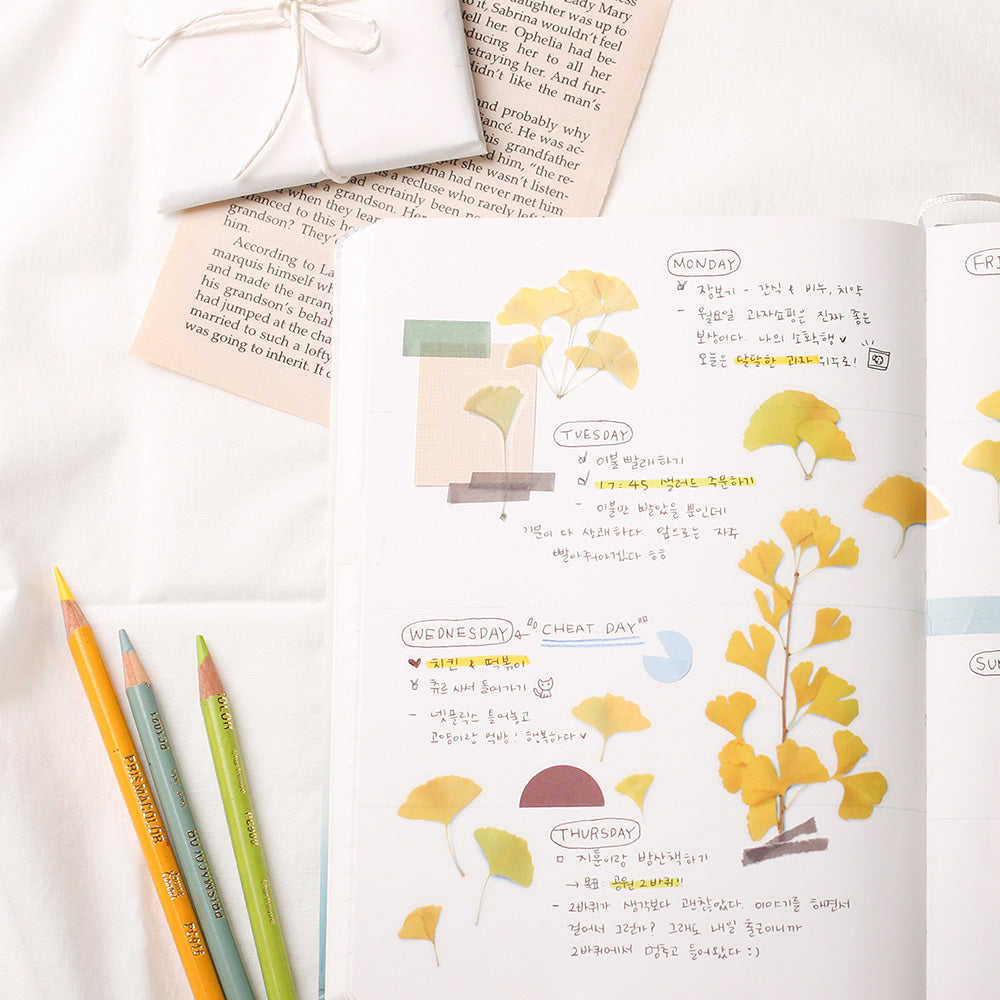 Lady Mary
to it, Sabrina wouldn't feel
tell her. Ophelia had be-
ducing her to all her
betraying her. And fur-
didn't like the man's
and probably why
fiancé. He was ac-
his grandfather
him, "the re-
out she wasn't listen-
as a recluse who rarely left
Sabrina had never met him
had certainly been
a grandson. Her
when they lear
hanced to this
grandson? They'
him.
According to La
marquis himself wh
and made the arran
his grandson's behal
had jumped at the cha
married to such a lofty
was going to inherit. It c
MONDAY
장보기 - 간식 & 비누, 치약
- 월요일 과자쇼핑은 진짜 좋은
보상이다. 나의 소확행
오늘은 달달한 과자 위주로!
TUESDAY
이불 빨래하기
17:45 샐러드 주문하기
- 이불만 빨았을 뿐인데
기분이 다 상쾌하다. 앞으로는 자주
빨아줘야겠다 ㅎㅎ
WEDNESDAY "CHEAT DAY"
치킨 & 떡볶이
츄르 사서 들어가기
- 넷플릭스 틀어놓고
고양이랑 먹방! 행복하다
THURSDAY
지훈이랑 밤산책하기
→ 목표: 공원 2바퀴!!
- 2바퀴가 생각보다 괜찮았다. 이야기를 하면서
걸어서 그런가? 그래도 내일 출근이니까
2바퀴에서 멈추고 들어왔다 :)
FRI
SUN
PRISMACOLOR
PRISMACOLOR